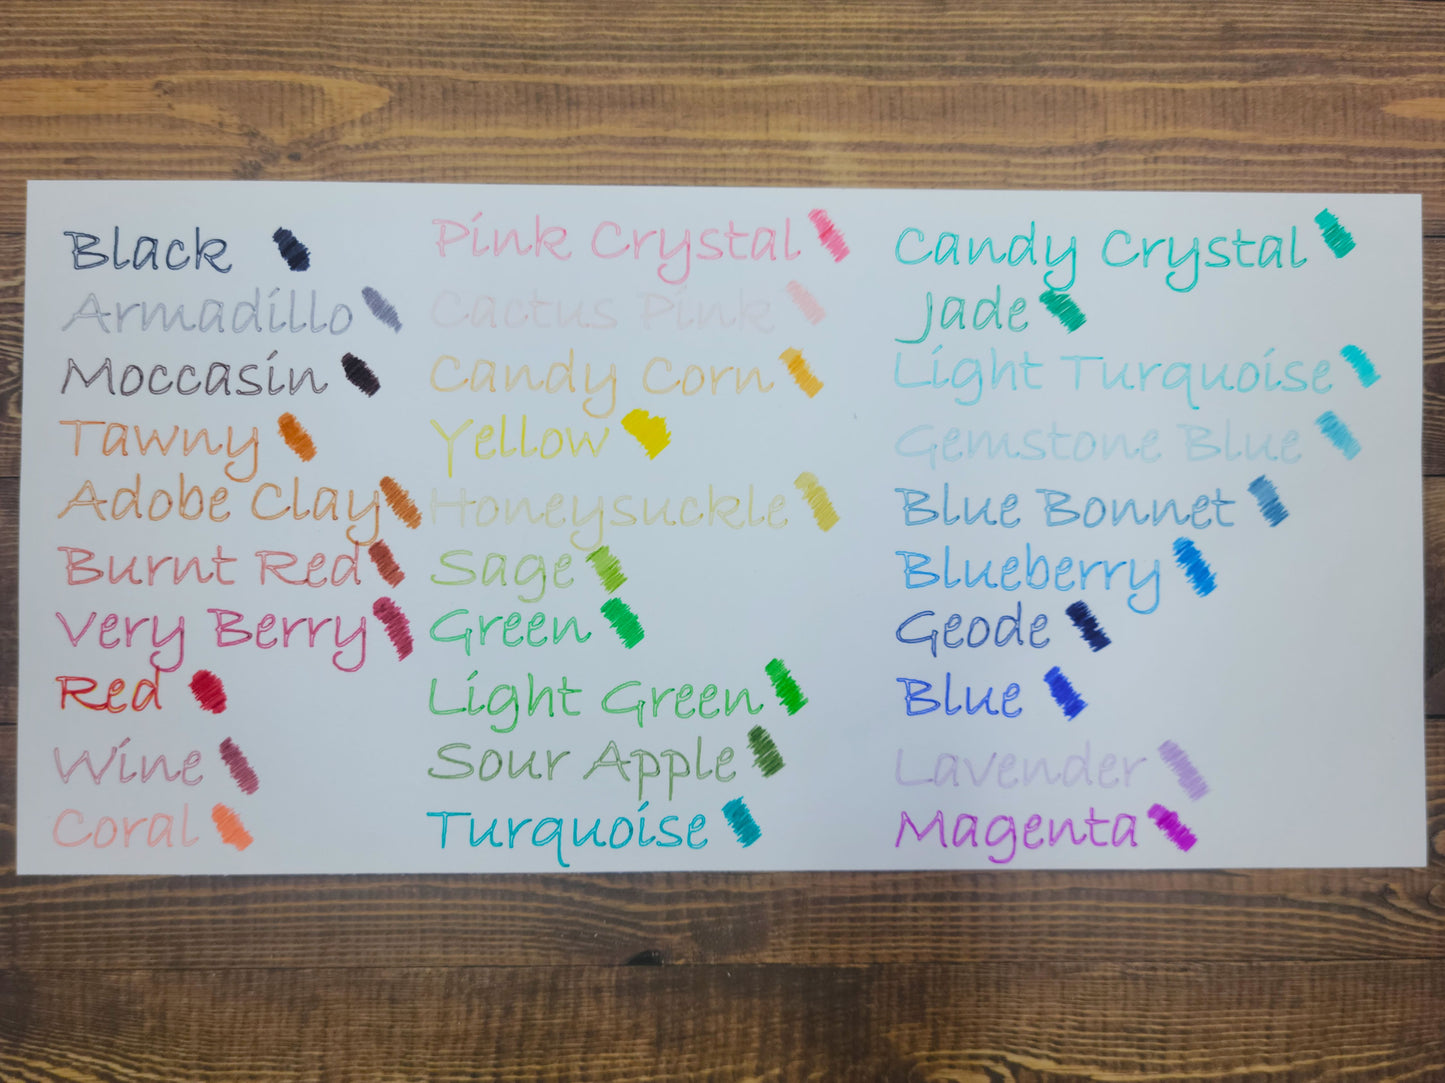 Black
Armadillo
Moccasin
Tawny
Adobe Clay
Burnt Red
Very Berry
Red
Wine
Coral
Pink Crystal
Cactus Pink
Candy Corn
Yellow
Honeysuckle
Sage
Green
Light Green
Sour Apple
Turquoise
Candy Crystal
Jade
Light Turquoise
Gemstone Blue
Blue Bonnet
Blueberry
Geode
Blue
Lavender
Magenta